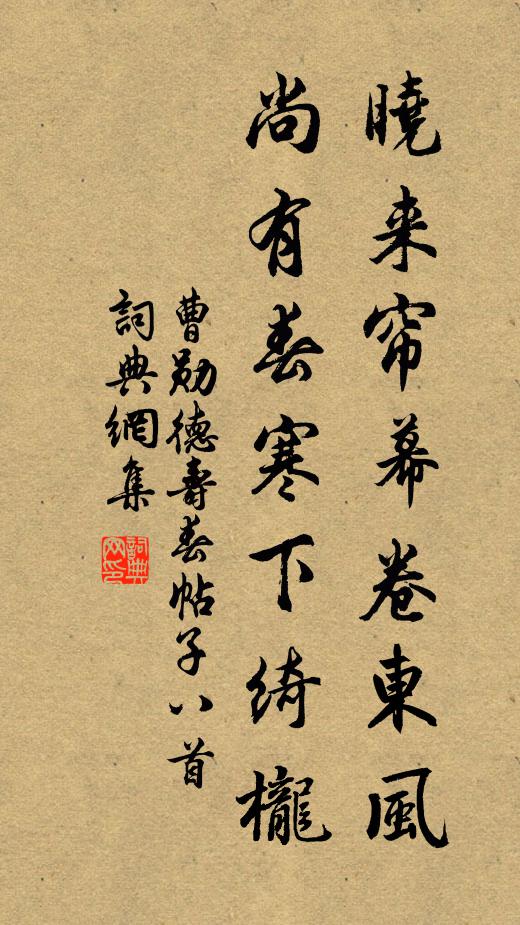 曉来帘幕卷東風
尚有春寒下綺櫳
曹勛德壽春帖子八首
詞典網集
詞典网印